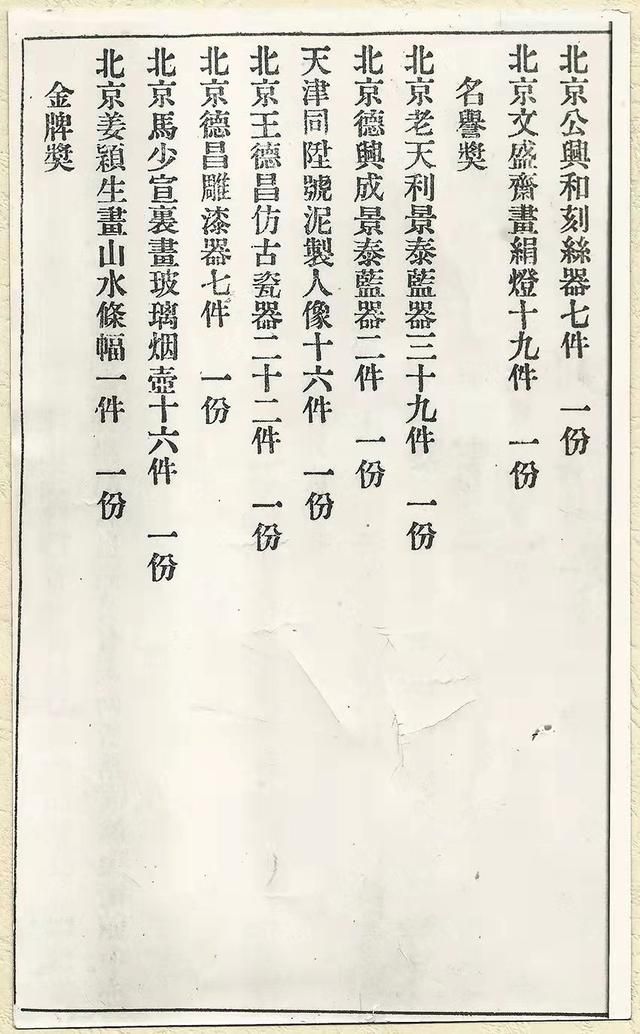 北京公興和刻絲器七件 一份
北京文盛齋畫絹燈十九件 一份
名譽獎
北京老天利景泰藍器三十九件 一份
北京德興成景泰藍器二件 一份
天津同陞號泥製人像十六件 一份
北京王德昌仿古瓷器二十二件 一份
北京德昌雕漆器七件 一份
北京馬少宣裏畫玻璃烟壺十六件 一份
北京姜穎生畫山水條幅一件 一份
金牌獎